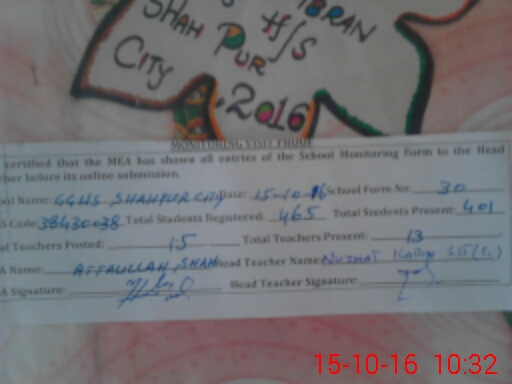 BRAN
SHAH PUR H/S
CITY
.2016
MONITORING VISIT PROOF
certified that the MEA has shown all entries of the School Monitoring Form to the Head
before its online submission.
Name: GGHS SHAHPUR CITY Date: 15-10-16 School Form No: 30
S Code: 38430038 Total Students Registered: 465 Total Students Present: 401
Teachers Posted: 15 Total Teachers Present: 13
A Name: ATTAULLAH SHAH Head Teacher Name: NUZHAT
A Signature: Head Teacher Signature:
15-10-16 10:32